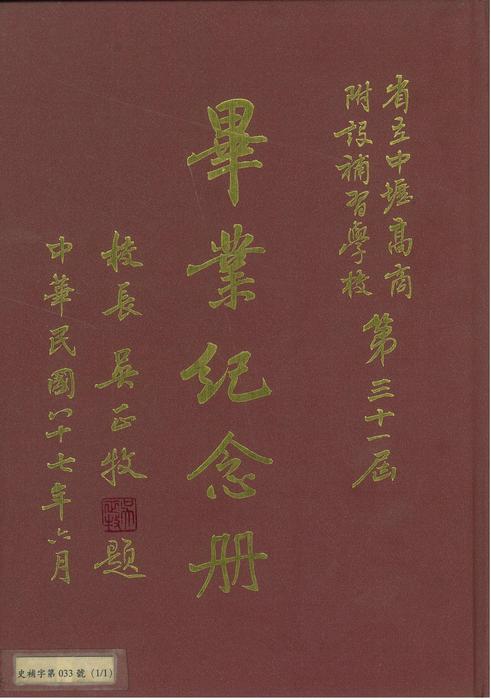 省立中壢高商
附設補習學校
第三十一屆
畢業紀念册
校長 吳正牧 題
中華民國八十七年六月
史補字第 033 號 (1/1)